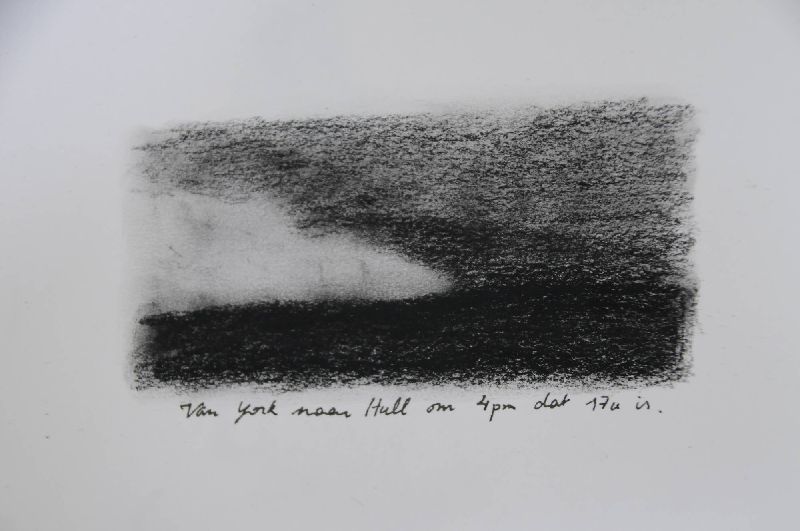 Van York naar Hull om 4pm dat 17u is.